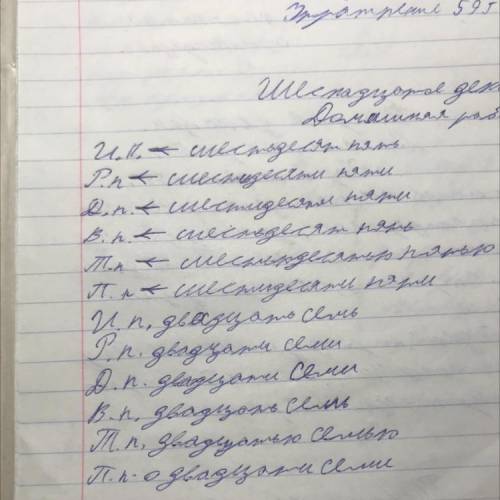 Упражнение 595
Шеснадцатое дек
Домашняя раб
И.п. ← шестьдесят пять
Р.п ← шестидесяти пяти
Д.п. ← шестидесяти пяти
В.п. ← шестьдесят пять
Т.п ← шестьюдесятью пятью
П.п ← шестидесяти пяти
И.п. двадцать семь
Р.п. двадцати семи
Д.п. двадцати семи
В.п. двадцать семь
Т.п. двадцатью семью
П.п - о двадцати семи